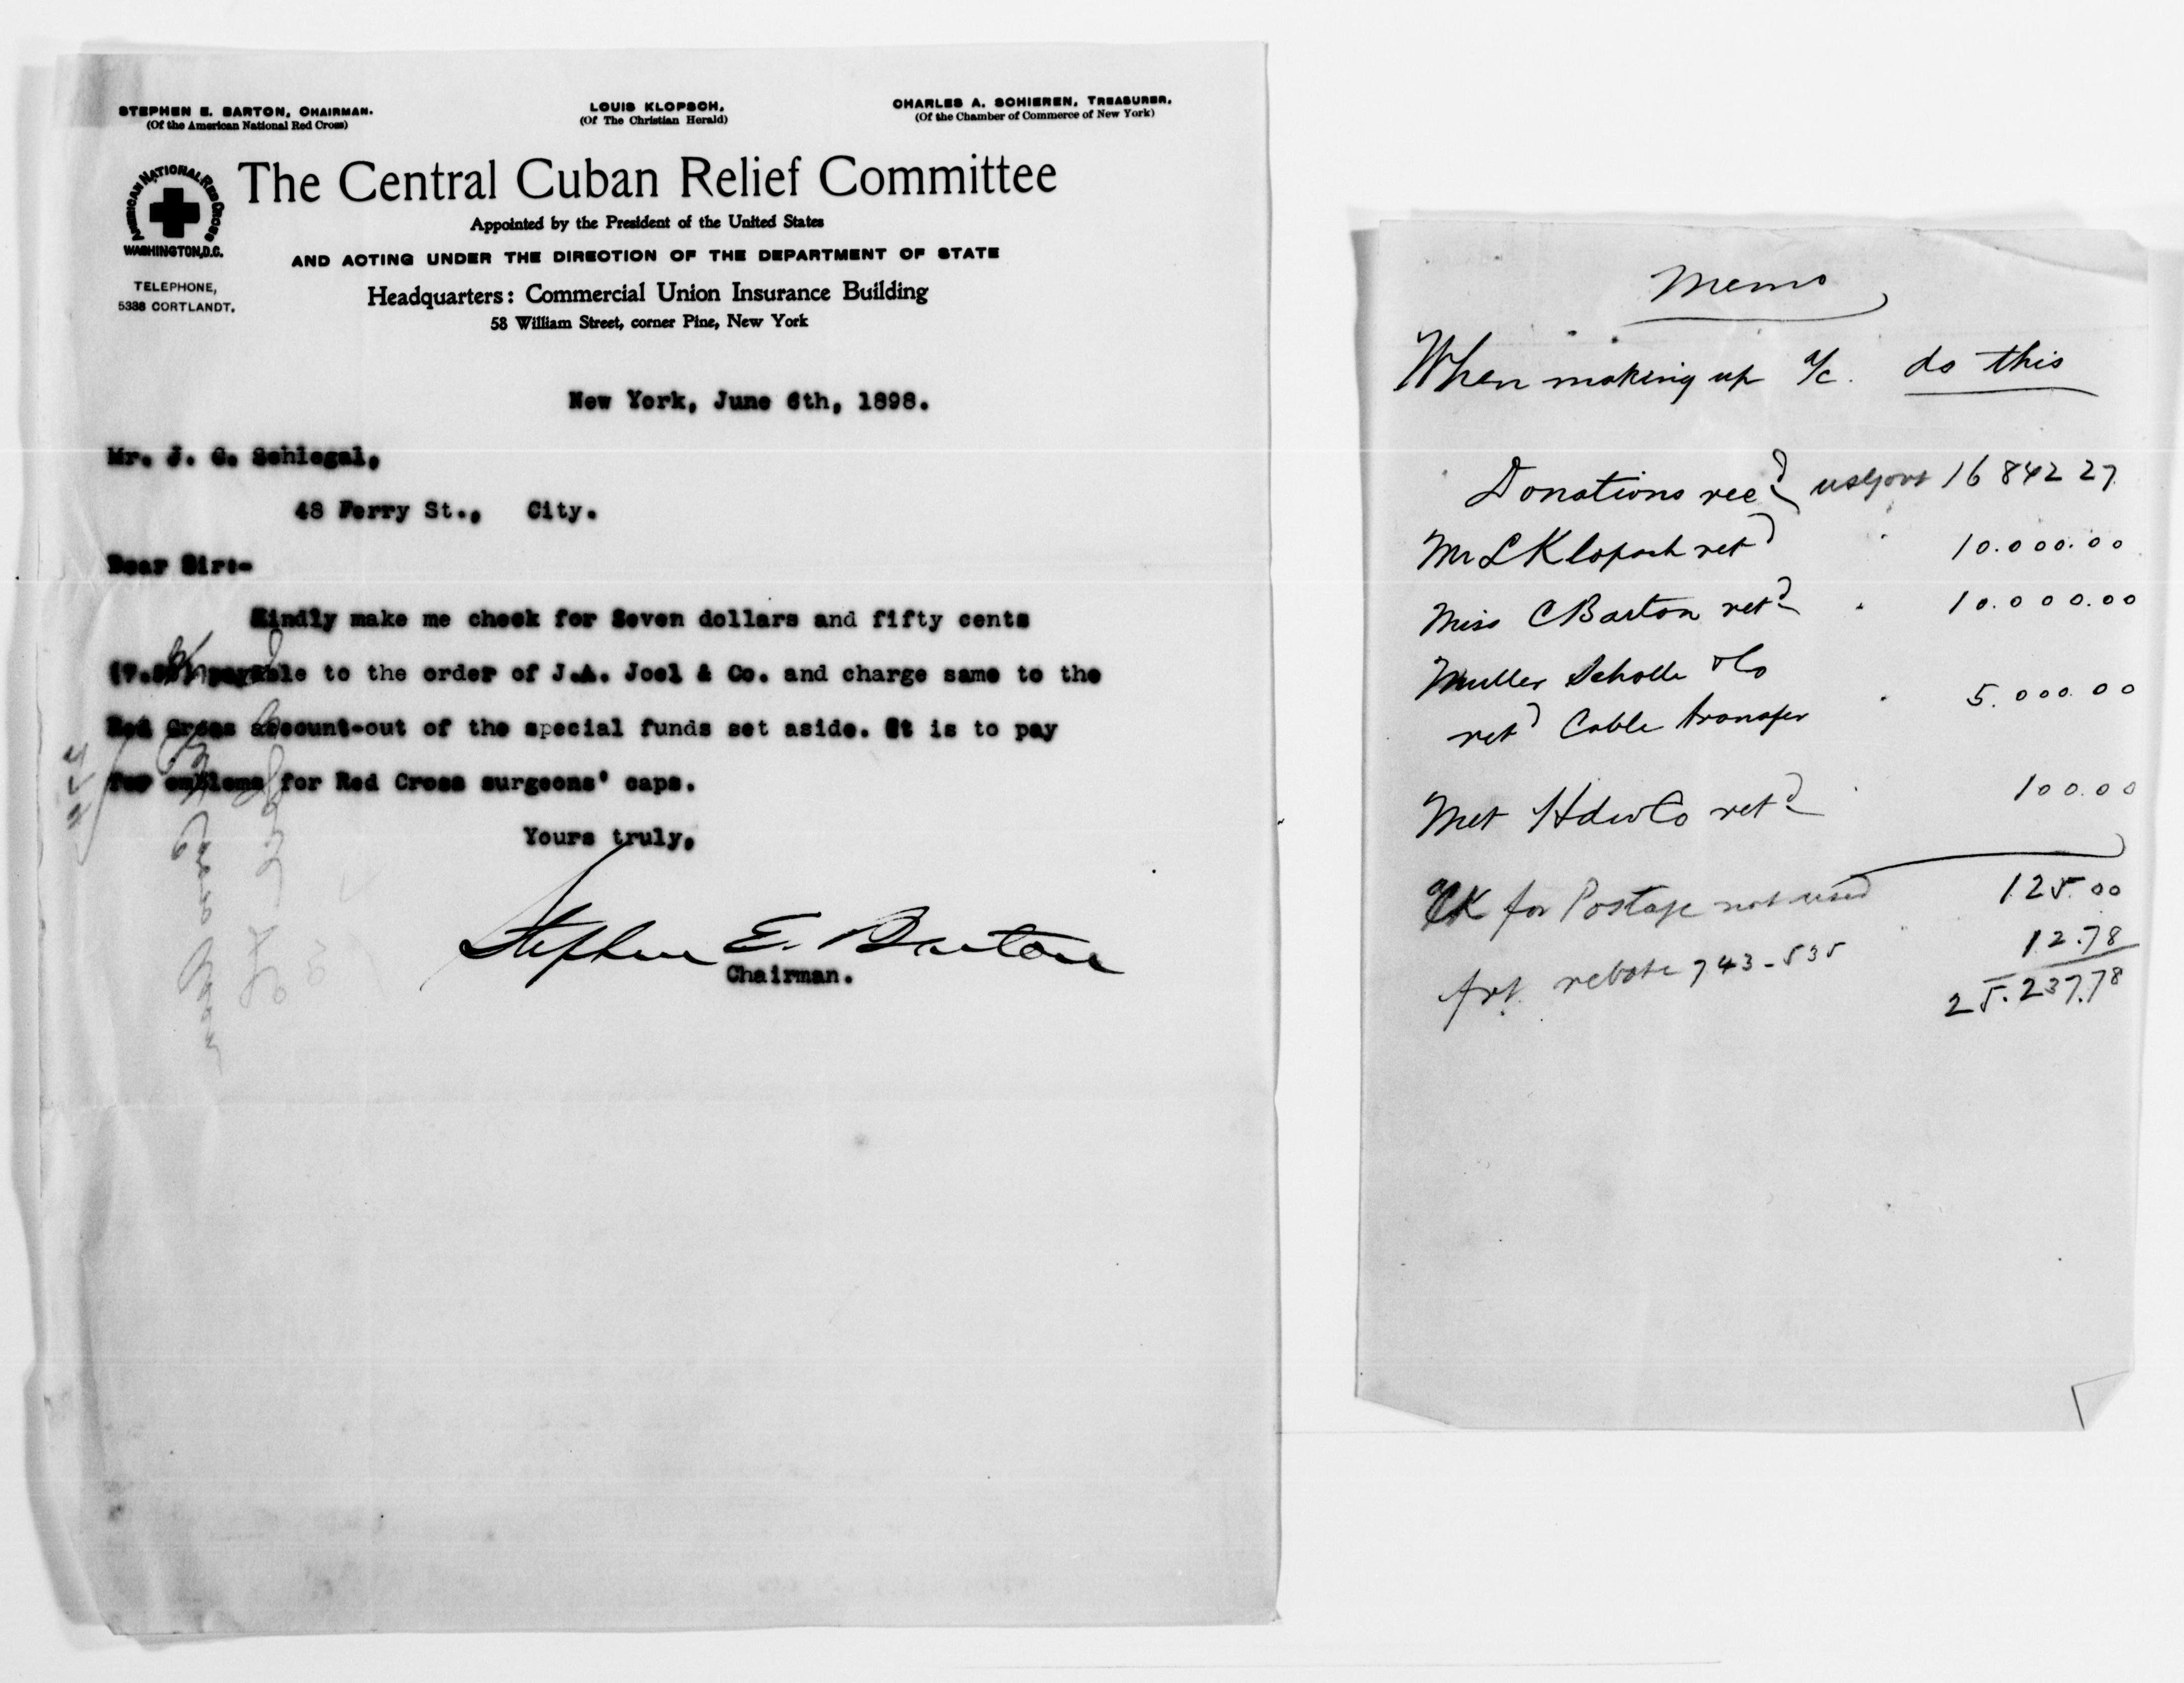 STEPHEN E. BARTON, CHAIRMAN.
(Of the American National Red Cross)
LOUIS KLOPSCH,
(Of The Christian Herald)
CHARLES A. SCHIEREN, TREASURER,
(Of the Chamber of Commerce of New York)
AMERICAN NATIONAL RED CROSS
WASHINGTON, D.C.
TELEPHONE,
5338 CORTLANDT.
The Central Cuban Relief Committee
Appointed by the President of the United States
AND ACTING UNDER THE DIRECTION OF THE DEPARTMENT OF STATE
Headquarters: Commercial Union Insurance Building
58 William Street, corner Pine, New York
New York, June 6th, 1898.
Mr. J. G. Schiegal,
48 Ferry St., City.
Dear Sir:-
Kindly make me check for Seven dollars and fifty cents
payable to the order of J.A. Joel & Co. and charge same to the
Red Cross account-out of the special funds set aside. It is to pay
for emblems for Red Cross surgeons' caps.
Yours truly,
Stephen E. Barton
Chairman.
Memo
When making up a/c. do this
Donations rec'd US Govt 16 842 27
Mr L Klopsch ret'd 10.000.00
Miss C Barton ret'd 10.000.00
Muller Schalle & Co
ret'd Cable transfer 5.000.00
Met Hdw Co ret'd 100.00
CK for Postage not used 125.00
Frt. rebate 743-535 12.78
25.237.78